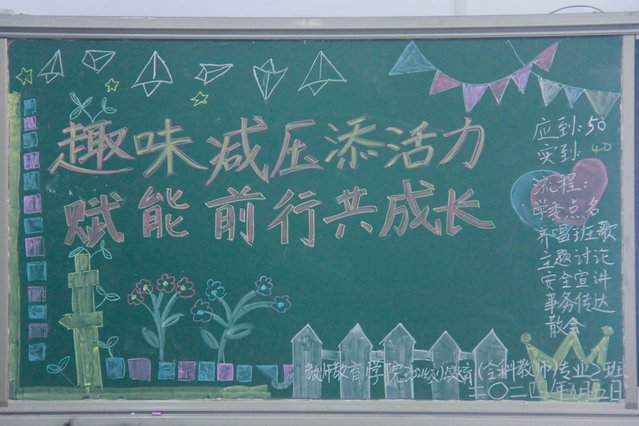 趣味减压添活力
赋能前行共成长
应到:50
实到:40
流程:
学委点名
齐唱班歌
主题讨论
安全宣讲
事务传达
散会
教师教育学院
教育(全科教师)专业2班
二〇二四年